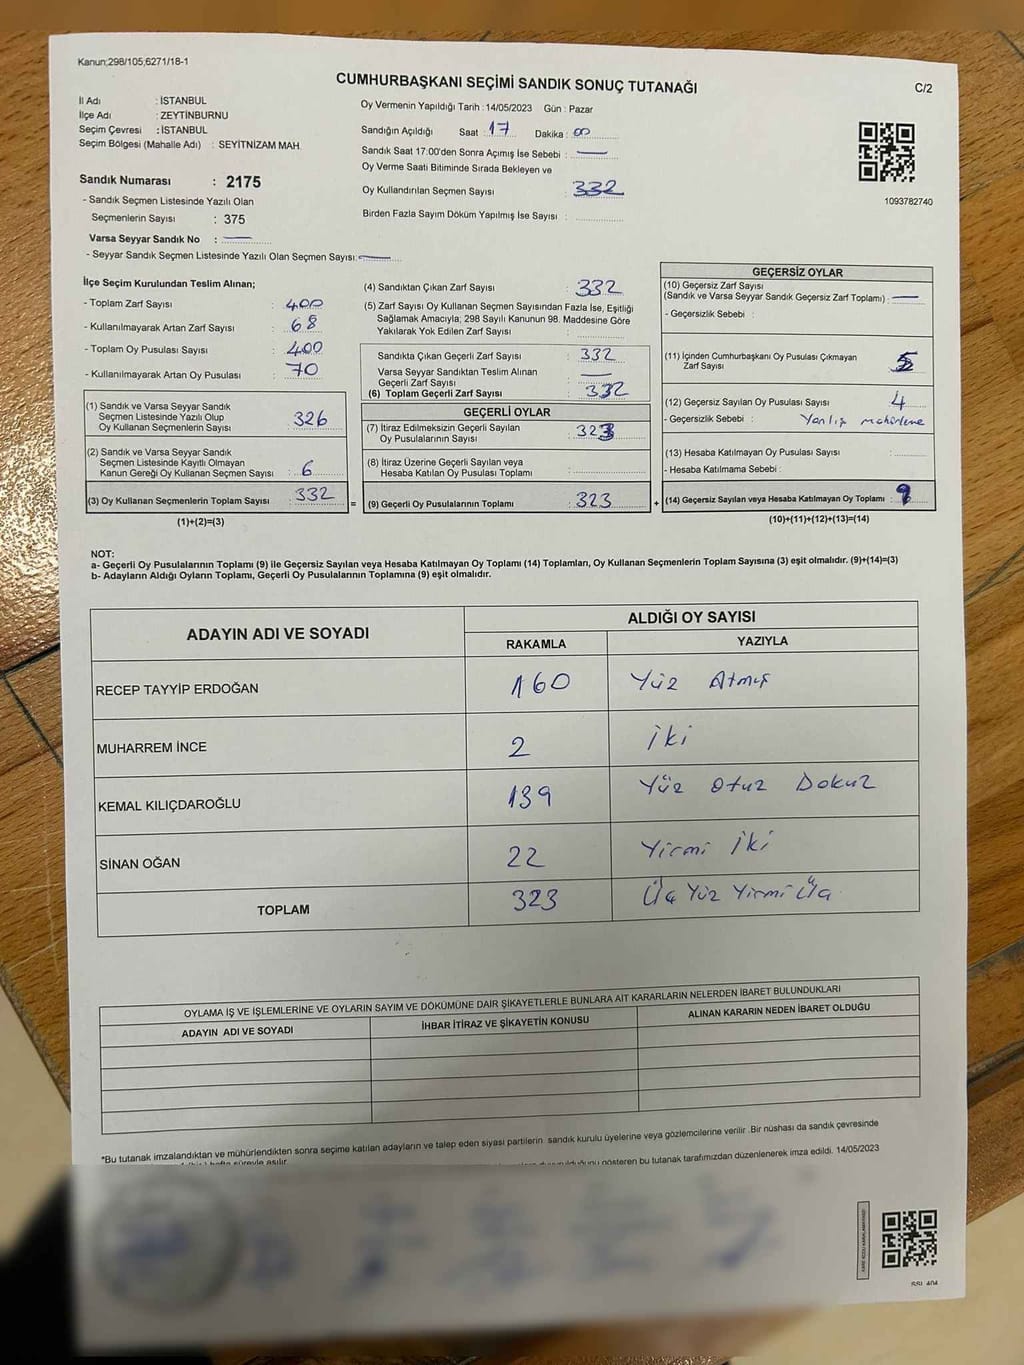 Kanun;298/105;6271/18-1
CUMHURBAŞKANI SEÇİMİ SANDIK SONUÇ TUTANAĞI
C/2
İl Adı : İSTANBUL
İlçe Adı : ZEYTİNBURNU
Seçim Çevresi : İSTANBUL
Seçim Bölgesi (Mahalle Adı) : SEYİTNİZAM MAH.
Sandık Numarası : 2175
- Sandık Seçmen Listesinde Yazılı Olan
Seçmenlerin Sayısı : 375
Varsa Seyyar Sandık No :
- Seyyar Sandık Seçmen Listesinde Yazılı Olan Seçmen Sayısı:
Oy Vermenin Yapıldığı Tarih : 14/05/2023 Gün : Pazar
Sandığın Açıldığı Saat : 17 Dakika : 00
Sandık Saat 17:00'den Sonra Açımış İse Sebebi :
Oy Verme Saati Bitiminde Sırada Bekleyen ve
Oy Kullandırılan Seçmen Sayısı : 332
Birden Fazla Sayım Döküm Yapılmış İse Sayısı :
1093782740
İlçe Seçim Kurulundan Teslim Alınan;
- Toplam Zarf Sayısı : 400
- Kullanılmayarak Artan Zarf Sayısı : 68
- Toplam Oy Pusulası Sayısı : 400
- Kullanılmayarak Artan Oy Pusulası : 70
(1) Sandık ve Varsa Seyyar Sandık
Seçmen Listesinde Yazılı Olup
Oy Kullanan Seçmenlerin Sayısı : 326
(2) Sandık ve Varsa Seyyar Sandık
Seçmen Listesinde Kayıtlı Olmayan
Kanun Gereği Oy Kullanan Seçmen Sayısı : 6
(3) Oy Kullanan Seçmenlerin Toplam Sayısı : 332
(1)+(2)=(3)
(4) Sandıktan Çıkan Zarf Sayısı : 332
(5) Zarf Sayısı Oy Kullanan Seçmen Sayısından Fazla İse, Eşitliği
Sağlamak Amacıyla; 298 Sayılı Kanunun 98. Maddesine Göre
Yakılarak Yok Edilen Zarf Sayısı :
Sandıkta Çıkan Geçerli Zarf Sayısı : 332
Varsa Seyyar Sandıktan Teslim Alınan
Geçerli Zarf Sayısı :
(6) Toplam Geçerli Zarf Sayısı : 332
GEÇERLİ OYLAR
(7) İtiraz Edilmeksizin Geçerli Sayılan
Oy Pusulalarının Sayısı : 323
(8) İtiraz Üzerine Geçerli Sayılan veya
Hesaba Katılan Oy Pusulası Toplamı :
= (9) Geçerli Oy Pusulalarının Toplamı : 323
GEÇERSİZ OYLAR
(10) Geçersiz Zarf Sayısı
(Sandık ve Varsa Seyyar Sandık Geçersiz Zarf Toplamı) :
- Geçersizlik Sebebi :
(11) İçinden Cumhurbaşkanı Oy Pusulası Çıkmayan
Zarf Sayısı : 5
(12) Geçersiz Sayılan Oy Pusulası Sayısı : 4
- Geçersizlik Sebebi : Yanlış mühürleme
(13) Hesaba Katılmayan Oy Pusulası Sayısı :
- Hesaba Katılmama Sebebi :
+ (14) Geçersiz Sayılan veya Hesaba Katılmayan Oy Toplamı : 9
(10)+(11)+(12)+(13)=(14)
NOT:
a- Geçerli Oy Pusulalarının Toplamı (9) ile Geçersiz Sayılan veya Hesaba Katılmayan Oy Toplamı (14) Toplamları, Oy Kullanan Seçmenlerin Toplam Sayısına (3) eşit olmalıdır. (9)+(14)=(3)
b- Adayların Aldığı Oyların Toplamı, Geçerli Oy Pusulalarının Toplamına (9) eşit olmalıdır.
ADAYIN ADI VE SOYADI
ALDIĞI OY SAYISI
RAKAMLA YAZIYLA
RECEP TAYYİP ERDOĞAN 160 Yüz Atmış
MUHARREM İNCE 2 İki
KEMAL KILIÇDAROĞLU 139 Yüz Otuz Dokuz
SİNAN OĞAN 22 Yirmi İki
TOPLAM 323 Üç Yüz Yirmi Üç
OYLAMA İŞ VE İŞLEMLERİNE VE OYLARIN SAYIM VE DÖKÜMÜNE DAİR ŞİKAYETLERLE BUNLARA AİT KARARLARIN NELERDEN İBARET BULUNDUKLARI
ADAYIN ADI VE SOYADI İHBAR İTİRAZ VE ŞİKAYETİN KONUSU ALINAN KARARIN NEDEN İBARET OLDUĞU
*Bu tutanak imzalandıktan ve mühürlendikten sonra seçime katılan adayların ve talep eden siyasi partilerin sandık kurulu üyelerine veya gözlemcilerine verilir .Bir nüshası da sandık çevresinde
hafta süreyle asılır. gösteren bu tutanak tarafımızdan düzenlenerek imza edildi. 14/05/2023